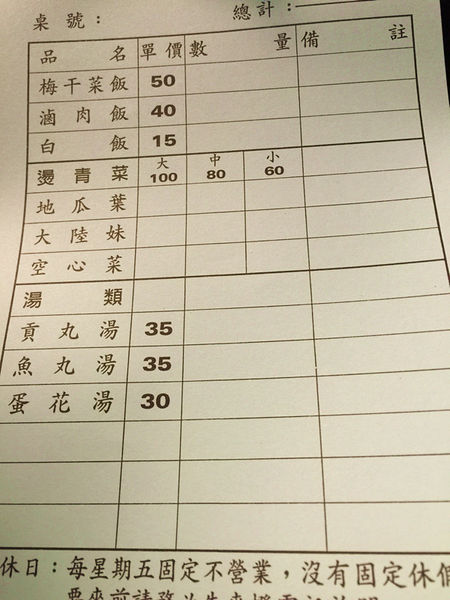 桌號： 總計：
品名 單價 數量 備註
梅干菜飯 50
滷肉飯 40
白飯 15
燙青菜 大100 中80 小60
地瓜葉
大陸妹
空心菜
湯類
貢丸湯 35
魚丸湯 35
蛋花湯 30
休日：每星期五固定不營業，沒有固定休假
要來前請務必先來